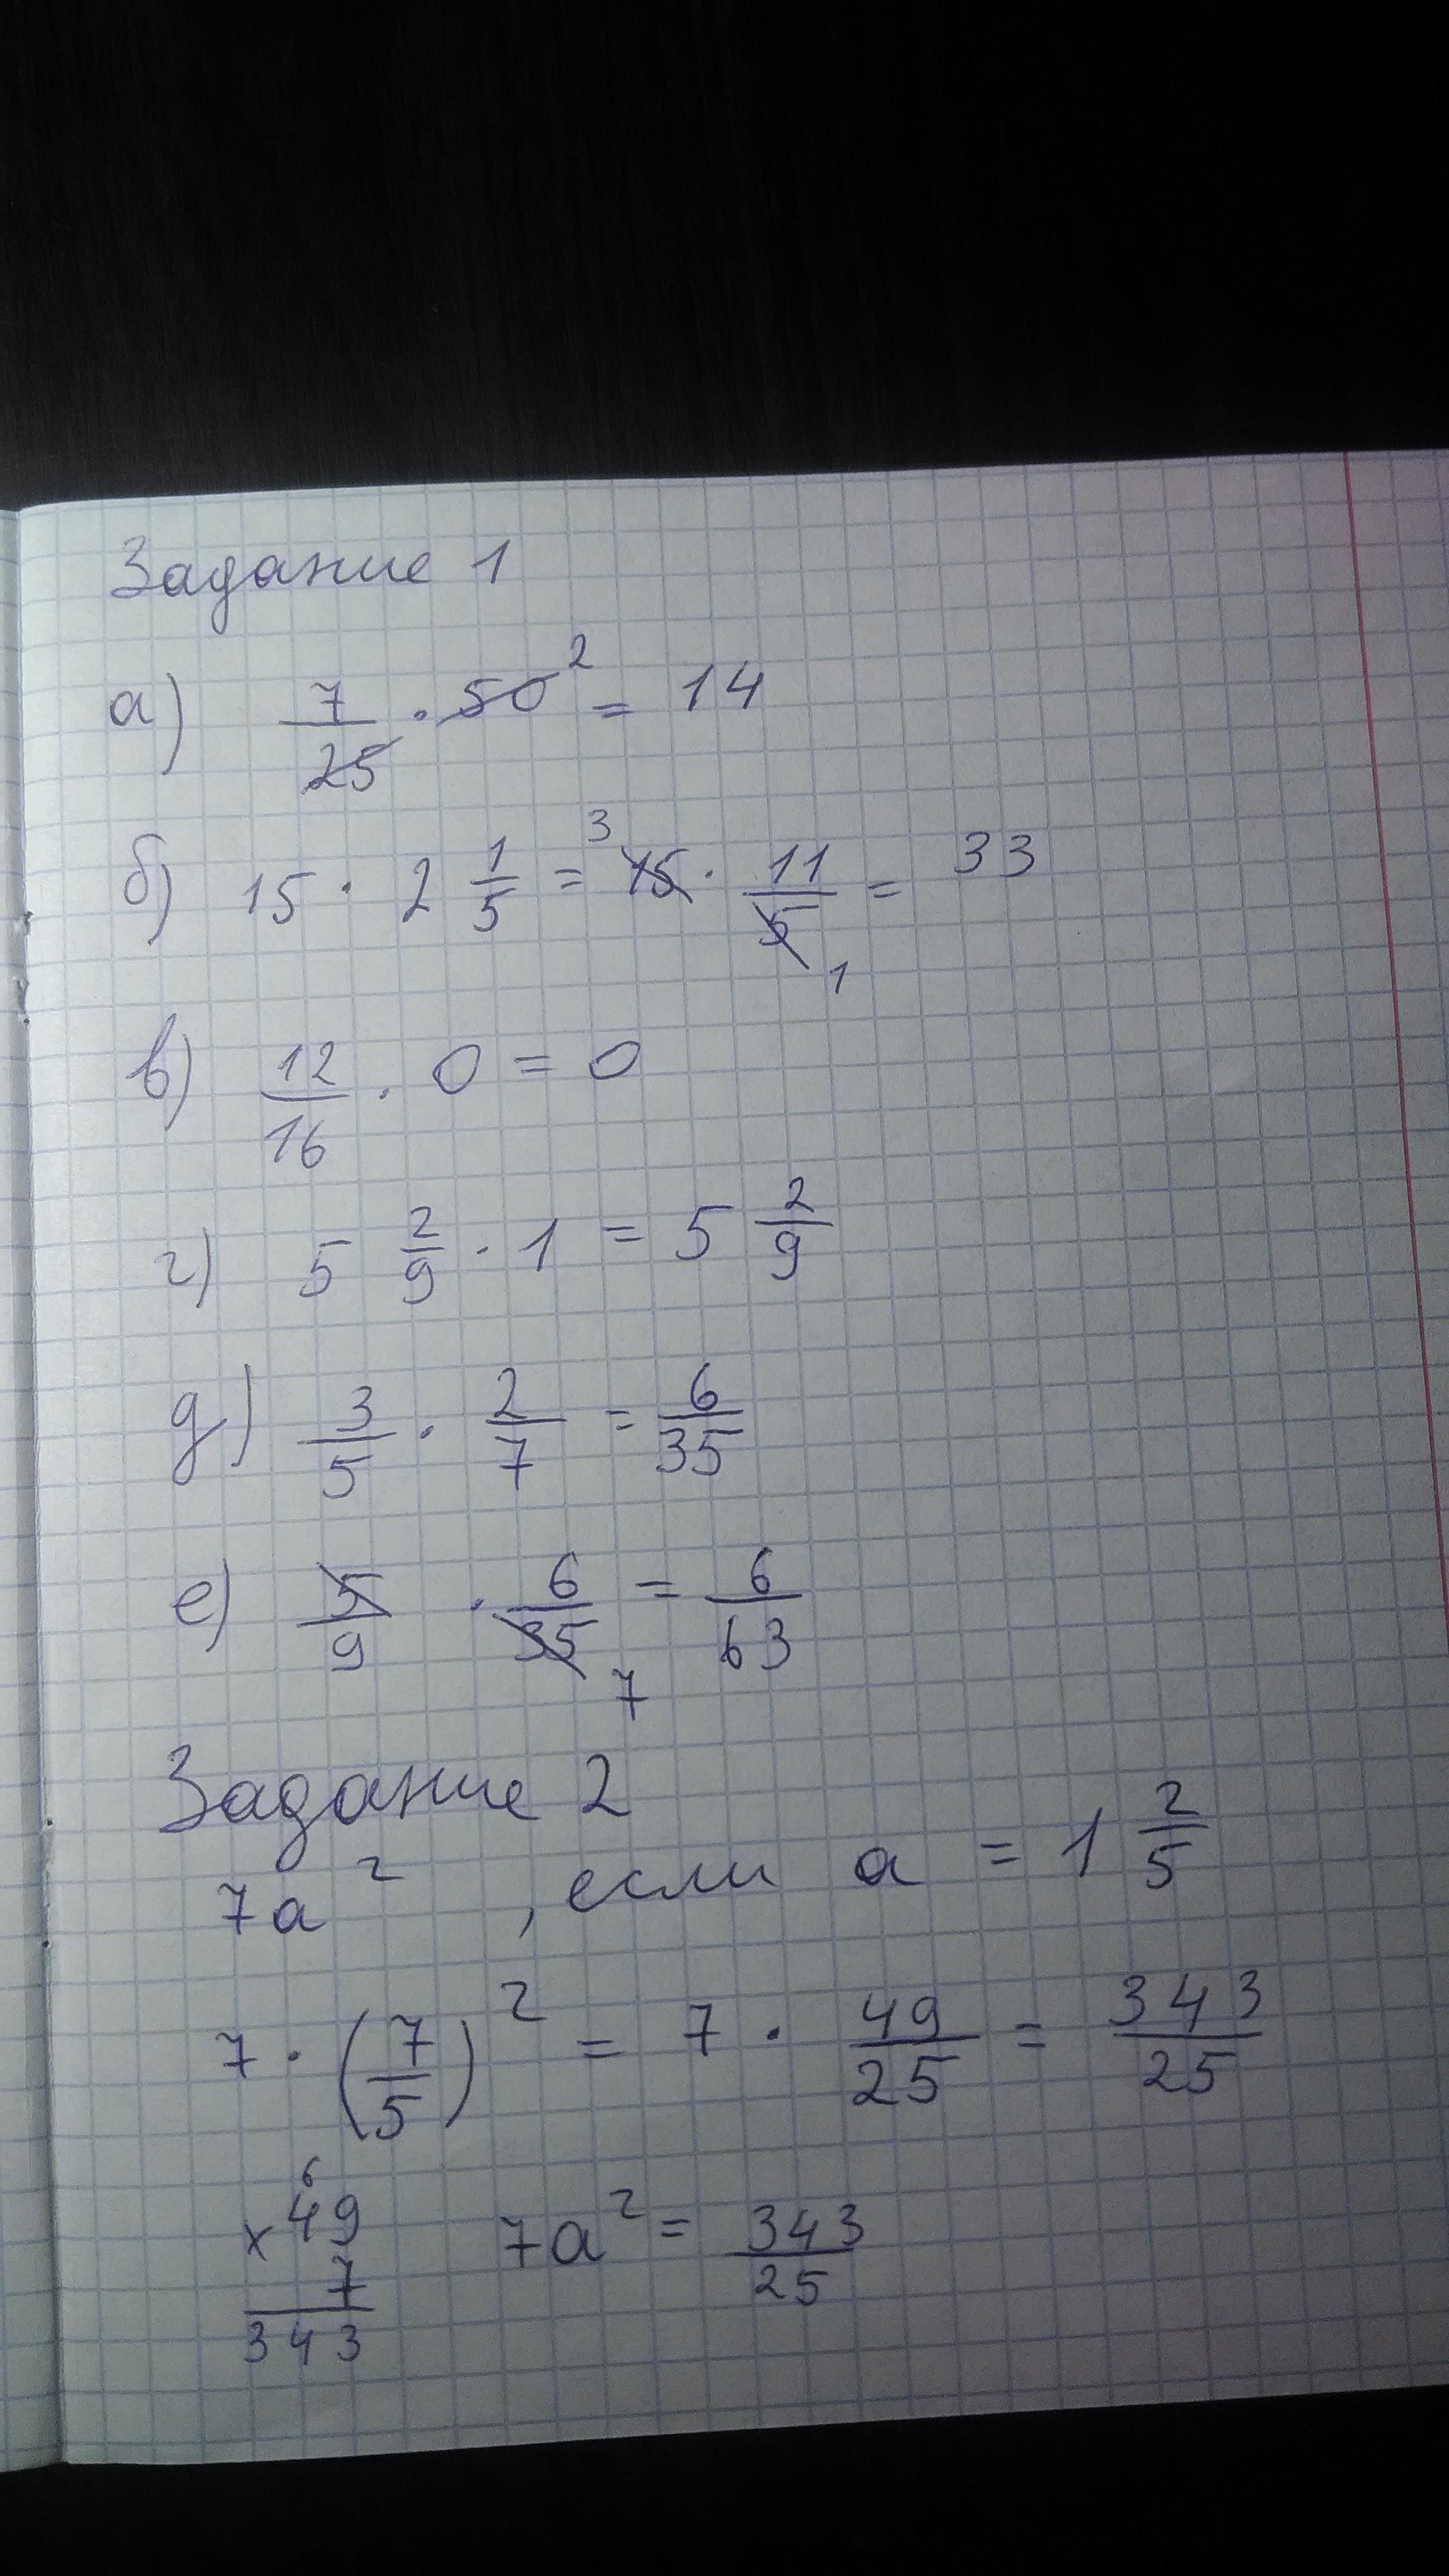 Задание 1
а) 7/25 · 50 2 = 14
б) 15 · 2 1/5 = 3 15 · 11/5 1 = 33
в) 12/16 · 0 = 0
г) 5 2/9 · 1 = 5 2/9
д) 3/5 · 2/7 = 6/35
е) 5/9 · 6/35 7 = 6/63
Задание 2
7a², если a = 1 2/5
7 · (7/5)² = 7 · 49/25 = 343/25
6
× 49
7
343
7a² = 343/25